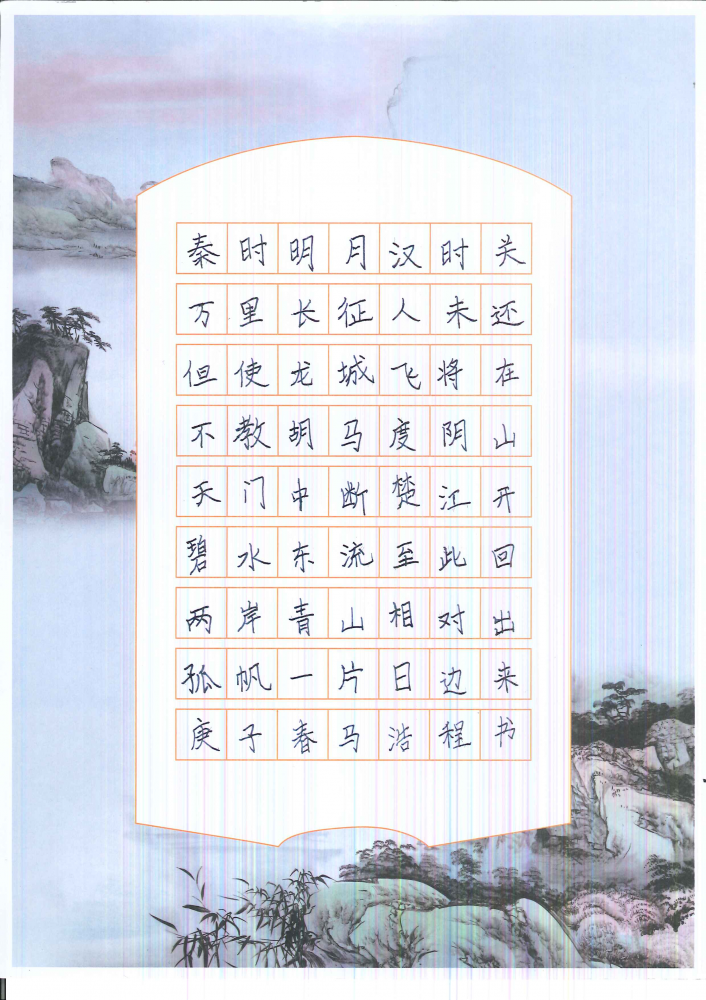 秦时明月汉时关
万里长征人未还
但使龙城飞将在
不教胡马度阴山
天门中断楚江开
碧水东流至此回
两岸青山相对出
孤帆一片日边来
庚子春马浩程书